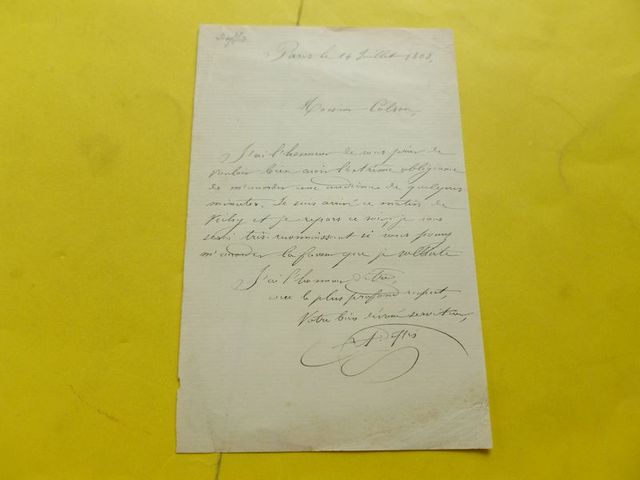 Deffès
Paris le 14 Juillet 1868,
Monsieur Colson,
J'ai l'honneur de vous prier de
vouloir bien avoir l'extrême obligeance
de m'accorder une audience de quelques
minutes. Je suis arrivé ce matin de
Vichy et je repars ce soir, je vous
serai très reconnaissant si vous pouvez
m'accorder la faveur que je sollicite
J'ai l'honneur d'être,
avec le plus profond respect,
Votre bien dévoué serviteur,
Deffès